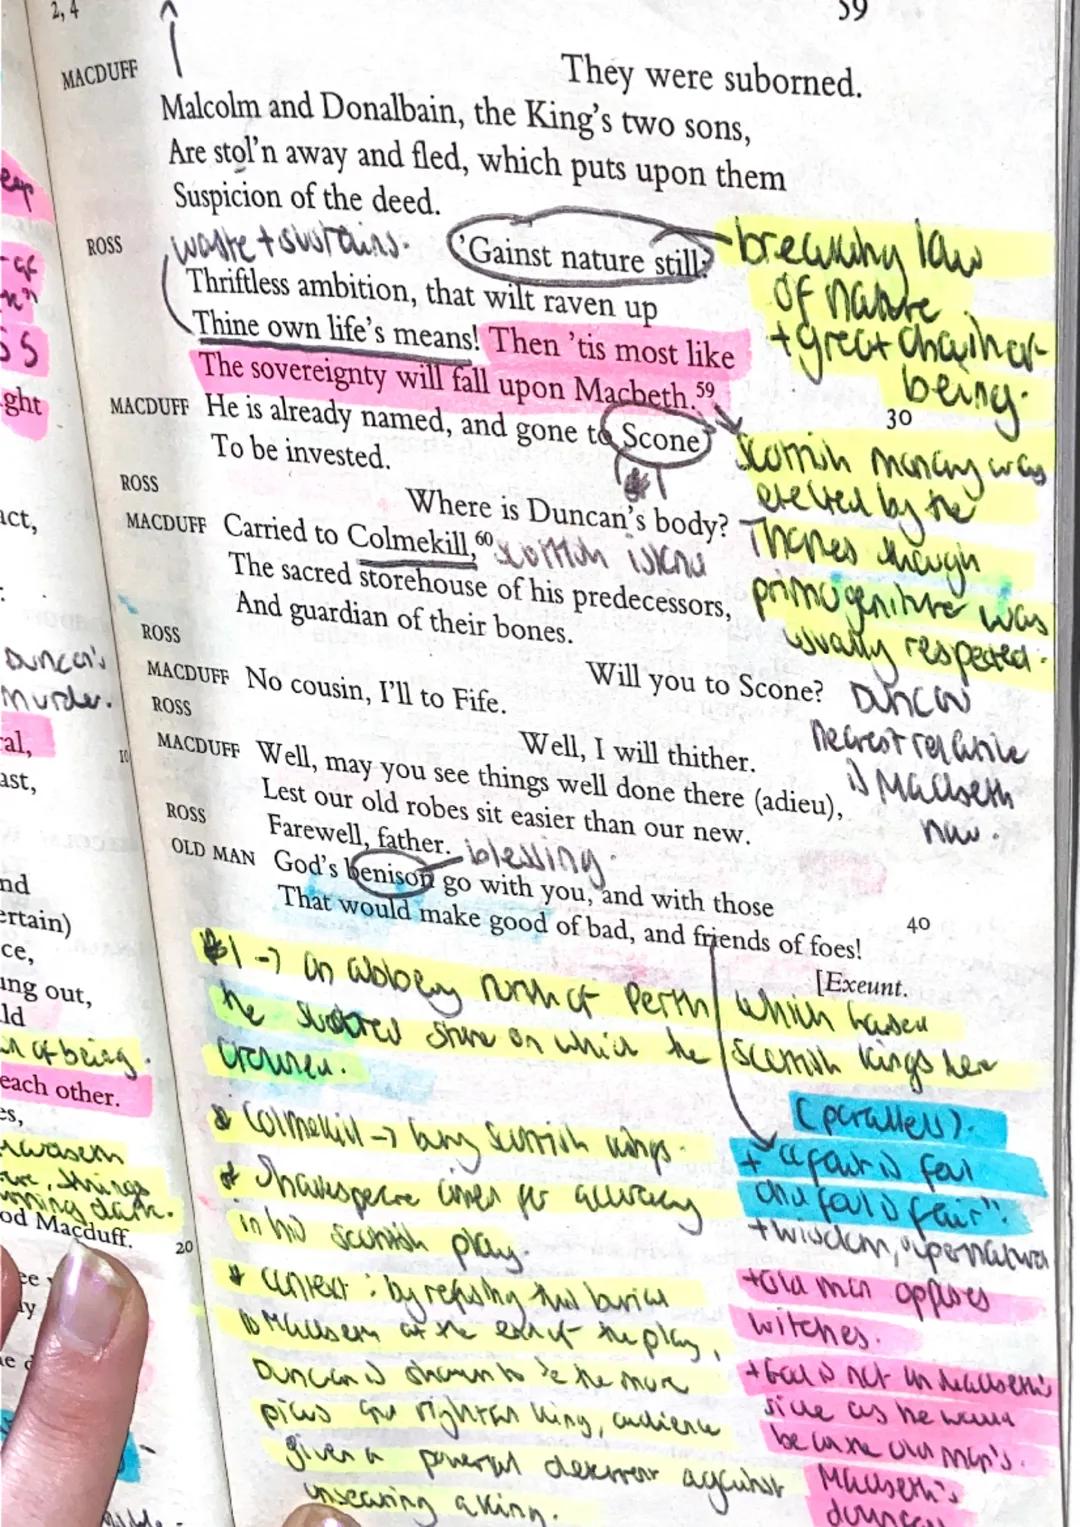 2, 4
59
MACDUFF
They were suborned.
Malcolm and Donalbain, the King's two sons,
Are stol'n away and fled, which puts upon them
Suspicion of the deed.
ROSS
waste + sustains.
'Gainst nature still:
Thriftless ambition, that wilt raven up
Thine own life's means! Then 'tis most like
The sovereignty will fall upon Macbeth.59
breaking law
of nature
+ great chain of
being.
30
MACDUFF He is already named, and gone to Scone
To be invested.
ROSS
Where is Duncan's body?
MACDUFF Carried to Colmekill,60
The sacred storehouse of his predecessors,
And guardian of their bones.
Scottish
was
elected by the
Thanes though
primogeniture was
usually respected.
ROSS
Will you to Scone?
MACDUFF No cousin, I'll to Fife.
ROSS
Well, I will thither.
Duncan
nearest relative
is Macbeth
now.
MACDUFF Well, may you see things well done there (adieu),
Lest our old robes sit easier than our new.
ROSS
Farewell, father.
blessing.
OLD MAN God's benison go with you, and with those
That would make good of bad, and friends of foes!
40
[Exeunt.
1 -> an north of Perth which
the stone on which the Scottish kings
crowned.
* Colmekill -> Scottish kings.
* Shakespeare for accuracy
in his scottish play.
* context: by refusing this burial
to Macbeth at the end of the play,
Duncan is shown to be the more
pious and king, audience
given a powerful deterrent against
a king.
(parallels).
+ "a fair is foul
and foul is fair".
+ wisdom,
+ old man opposes
witches.
+ God is not on Macbeth's
side as he would
be on the old man's.
Macbeth's
eap
ght
act,
Duncan's
Murder.
al,
10
ast,
nd
ertain)
ce,
ing out,
ld
of being.
each other.
es,
things
dark.
od Macduff.
20